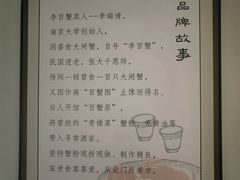 品牌故事
李百蟹其人——李瑞清，
南京大学创始人，
因喜食大闸蟹，自号“李百蟹”，
民国遗老，张大千恩师，
传闻一顿曾食一百只大闸蟹，
又因作画“百蟹图”止馋而得名。
后人开馆“百蟹居”，
将曾经的“青楼菜”蟹粉、秃黄油等
带入寻常酒家。
坚持蟹粉现拆现做、制作精良，
深受食客喜爱，从此门庭若市。